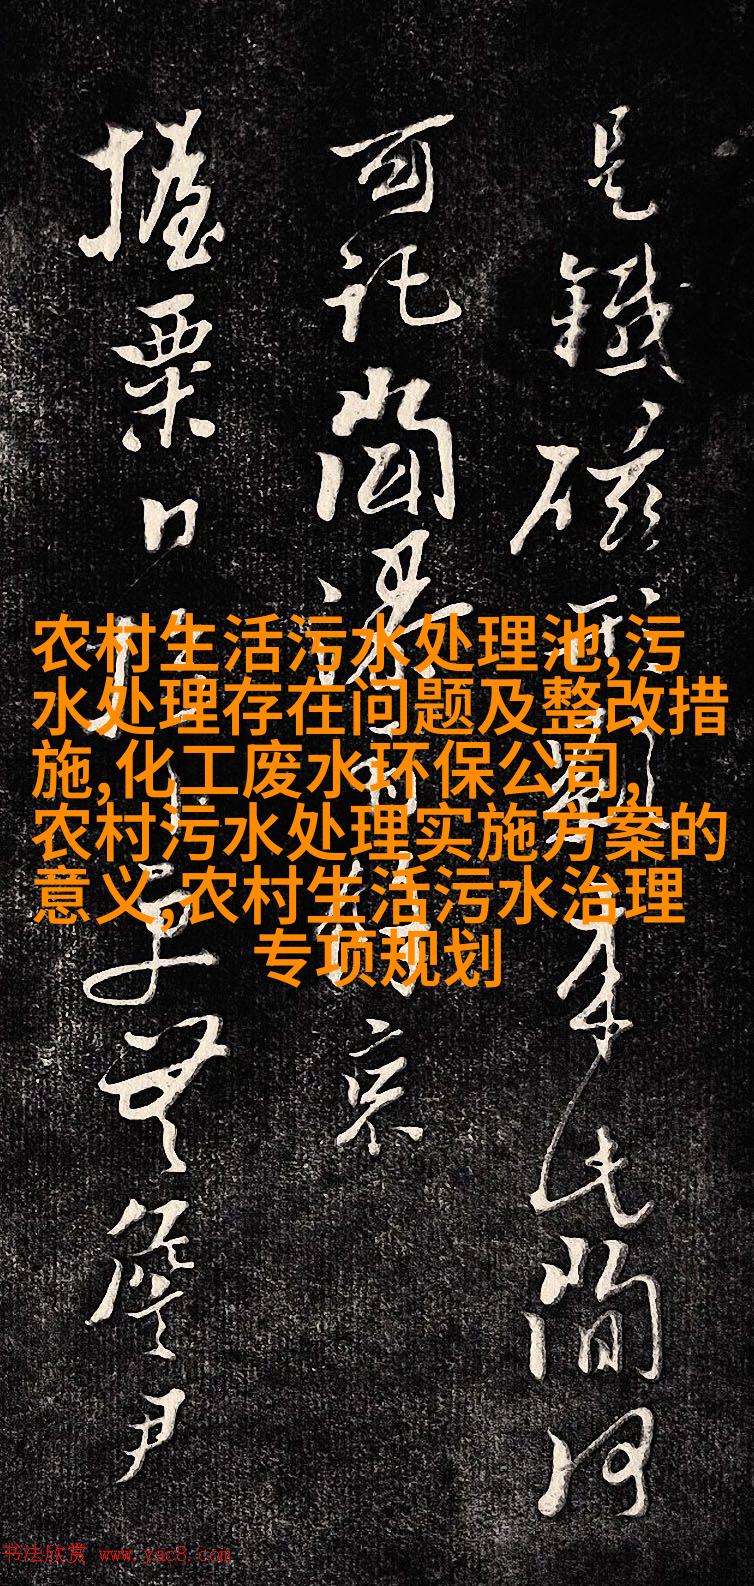 是鐵磁民間何
可託
握粟詹尹
农村生活污水处理池,污
水处理存在问题及整改措
施,化工废水环保公司,
农村污水处理实施方案的
意义,农村生活污水治理
专项规划
书法欣赏 www.yac8.com